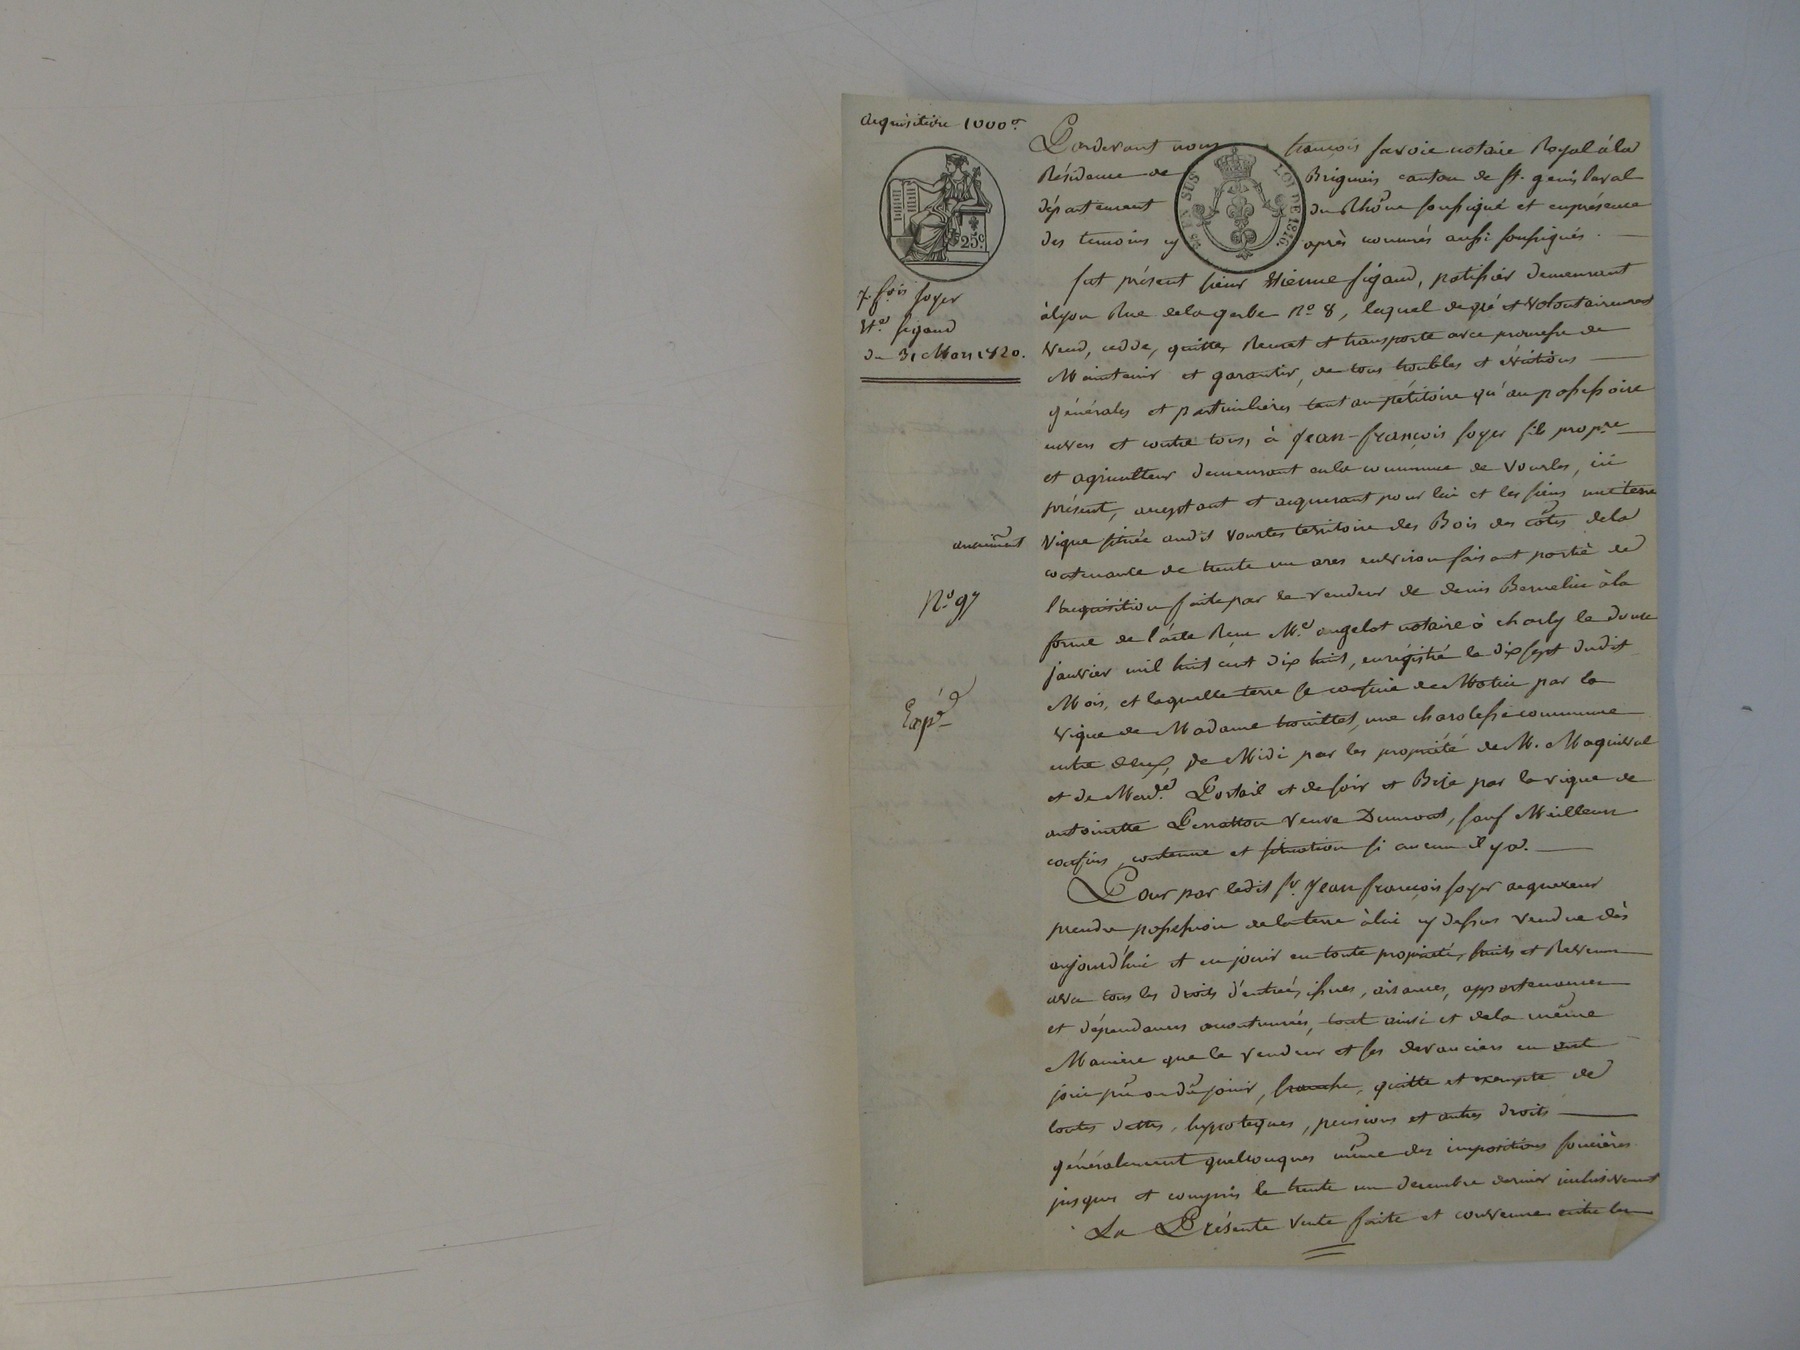 acquisition 1000 f.
25 c.
EN SUS
LOI DE 1816.
J. f.çois foyer
Et.e sigaud
du 31 Mars 1820.
Pardevant nous françois savoie notaire Royal à la
Résidence de Brignais canton de St. genis laval
département du Rhône soussigné et en présence
des temoins cy après nommés aussi soussignés.
fut présent sieur Etienne sigaud, patissier demeurant
à lyon Rue de la gerbe No. 8, lequel de gré et volontairement
vend, cedde, quitte, Remet et transporte avec promesse de
Maintenir et garantir, de tous troubles et évictions
générales et particulières tant au pétitoire qu'au possessoire
envers et contre tous, à Jean-françois foyer fils prop.re
et agriculteur demeurant en la commune de vourles, ici
présent, acceptant et acquerant pour lui et les siens, une terre
anciennement
vigne située audit vourles territoire des Bois des côtes de la
contenance de trente un ares environ faisant partie de
No. 97
l'acquisition faite par le vendeur de denis Bernelin à la
forme de l'acte Reçu M.e angelot notaire à charly le douze
janvier mil huit cent dix huit, enrégistré le dix sept dudit
Mois, et laquelle terre se confine de Matin par la
Exp.é
vigne de Madame trouillet, une charolesse commune
entre deux, de Midi par les propriété de M. Maquival
et de Mad.e Portail et de soir et Bise par la vigne de
antoinette Perratton veuve Dumont, sauf Meilleurs
confins, contenue et situation si aucun il y a.
Pour par ledit Sr. Jean françois foyer acquereur
prendre possession de la terre à lui cy dessus vendue dès
aujourd'hui et en jouir en toute propriété, fruits et Revenus
avec tous les droits d'entrées, issues, aisances, appartenances
et dépendances accoutumées, tout ainsi et de la même
Manière que le vendeur et ses devanciers en ont
joui pû ou dû jouir, franche, quitte et exempte de
toutes dettes, hypoteques, pensions et autres droits
généralement quelconques même des impositions foncières
jusques et compris le trente un decembre dernier inclusivement
La Présente vente faite et convenue entre les